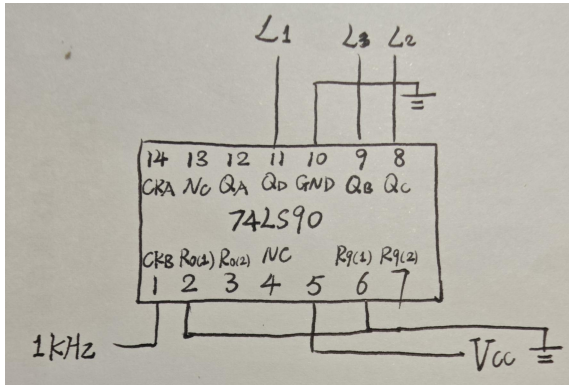 L1 L3 L2
14 13 12 11 10 9 8
CKA NC QA QD GND QB QC
74LS90
CKB R0(1) R0(2) NC R9(1) R9(2)
1 2 3 4 5 6 7
1KHz Vcc